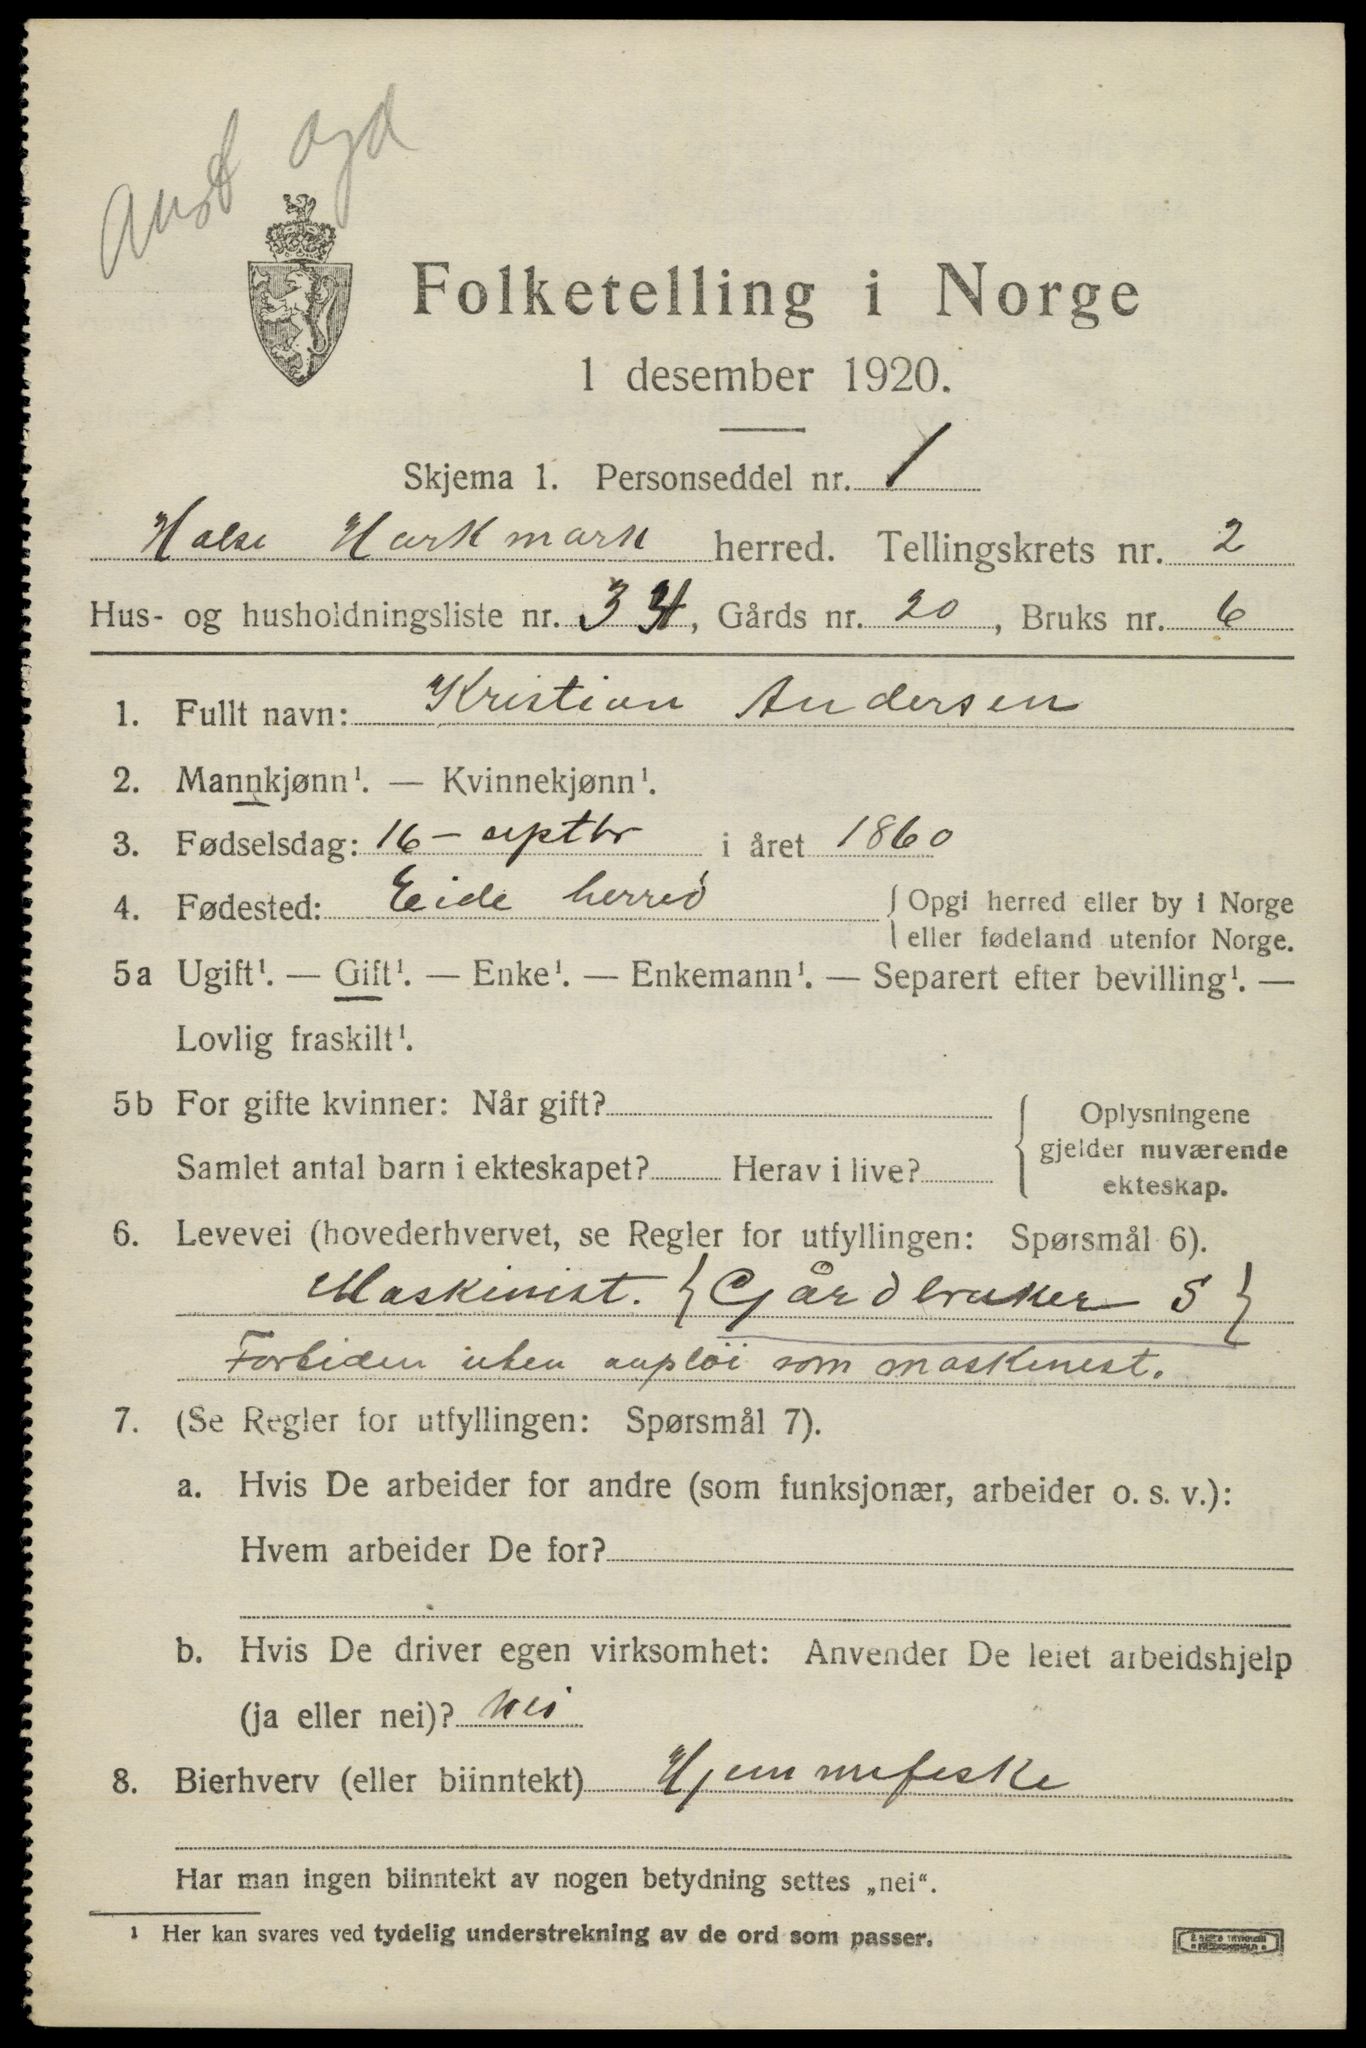 Folketelling i Norge
1 desember 1920.
Skjema 1. Personseddel nr. 1
Halse Harkmark herred. Tellingskrets nr. 2
Hus- og husholdningsliste nr. 34, Gårds nr. 20, Bruks nr. 6
1. Fullt navn: Kristian Andersen
2. Mannkjønn¹. — Kvinnekjønn¹.
3. Fødselsdag: 16 – septbr i året 1860
4. Fødested: Eide herred { Opgi herred eller by i Norge
eller fødeland utenfor Norge.
5a Ugift¹. — Gift¹. — Enke¹. — Enkemann¹. — Separert efter bevilling¹. —
Lovlig fraskilt¹.
5b For gifte kvinner: Når gift?
Samlet antal barn i ekteskapet? Herav i live?
{ Oplysningene
gjelder nuværende
ekteskap.
6. Levevei (hovederhvervet, se Regler for utfyllingen: Spørsmål 6).
Maskinist. { Gjårdbruker S }
Fortiden uten anpløi som maskinest.
7. (Se Regler for utfyllingen: Spørsmål 7).
a. Hvis De arbeider for andre (som funksjonær, arbeider o. s. v.):
Hvem arbeider De for?
b. Hvis De driver egen virksomhet: Anvender De leiet arbeidshjelp
(ja eller nei)? nei
8. Bierhverv (eller biinntekt) Hjemmefeske
Har man ingen biinntekt av nogen betydning settes „nei“.
¹ Her kan svares ved tydelig understrekning av de ord som passer.